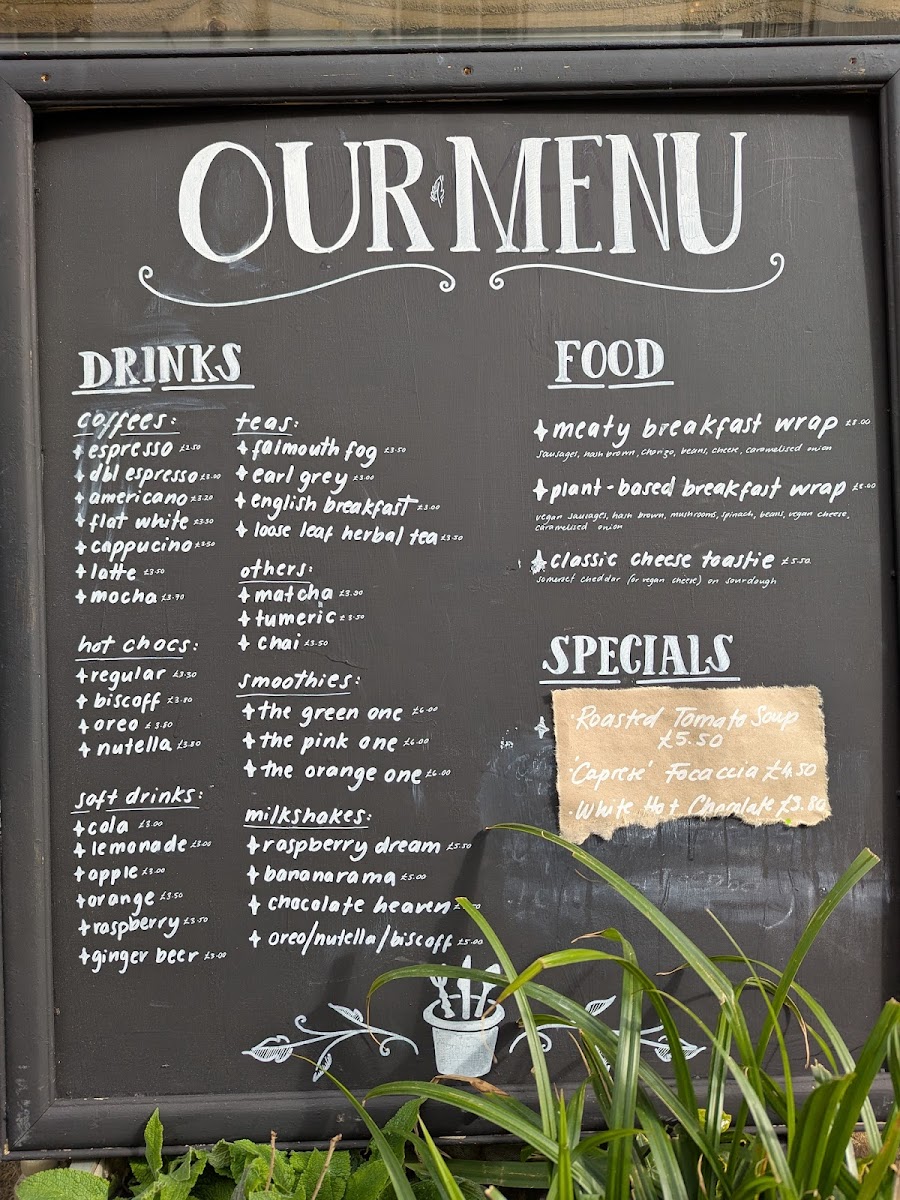 OUR MENU
DRINKS
coffees:
espresso £2.50
dbl espresso £3.00
americano £3.20
flat white £3.50
cappucino £3.50
latte £3.50
mocha £3.70
hot chocs:
regular £3.50
biscoff £3.80
oreo £3.80
nutella £3.80
soft drinks:
cola £3.00
lemonade £3.00
apple £3.00
orange £3.50
raspberry £3.50
ginger beer £3.00
teas:
falmouth fog £3.50
earl grey £3.00
english breakfast £3.00
loose leaf herbal tea £3.50
others:
matcha
tumeric £3.50
chai £3.50
smoothies:
the green one £6.00
the pink one £6.00
the orange one £6.00
milkshakes:
raspberry dream £5.50
bananarama £5.00
chocolate heaven
oreo/nutella/biscoff £5.00
FOOD
meaty breakfast wrap £8.00
sausages, hash brown, chorizo, beans, cheese, caramelised onion
plant-based breakfast wrap £8.00
vegan sausages, hash brown, mushrooms, spinach, beans, vegan cheese,
caramelised onion
classic cheese toastie £5.50
somerset cheddar (or vegan cheese) on sourdough
SPECIALS
·Roasted Tomato Soup
£5.50
·'Caprese' Focaccia £4.50
·White Hot Chocolate £3.80